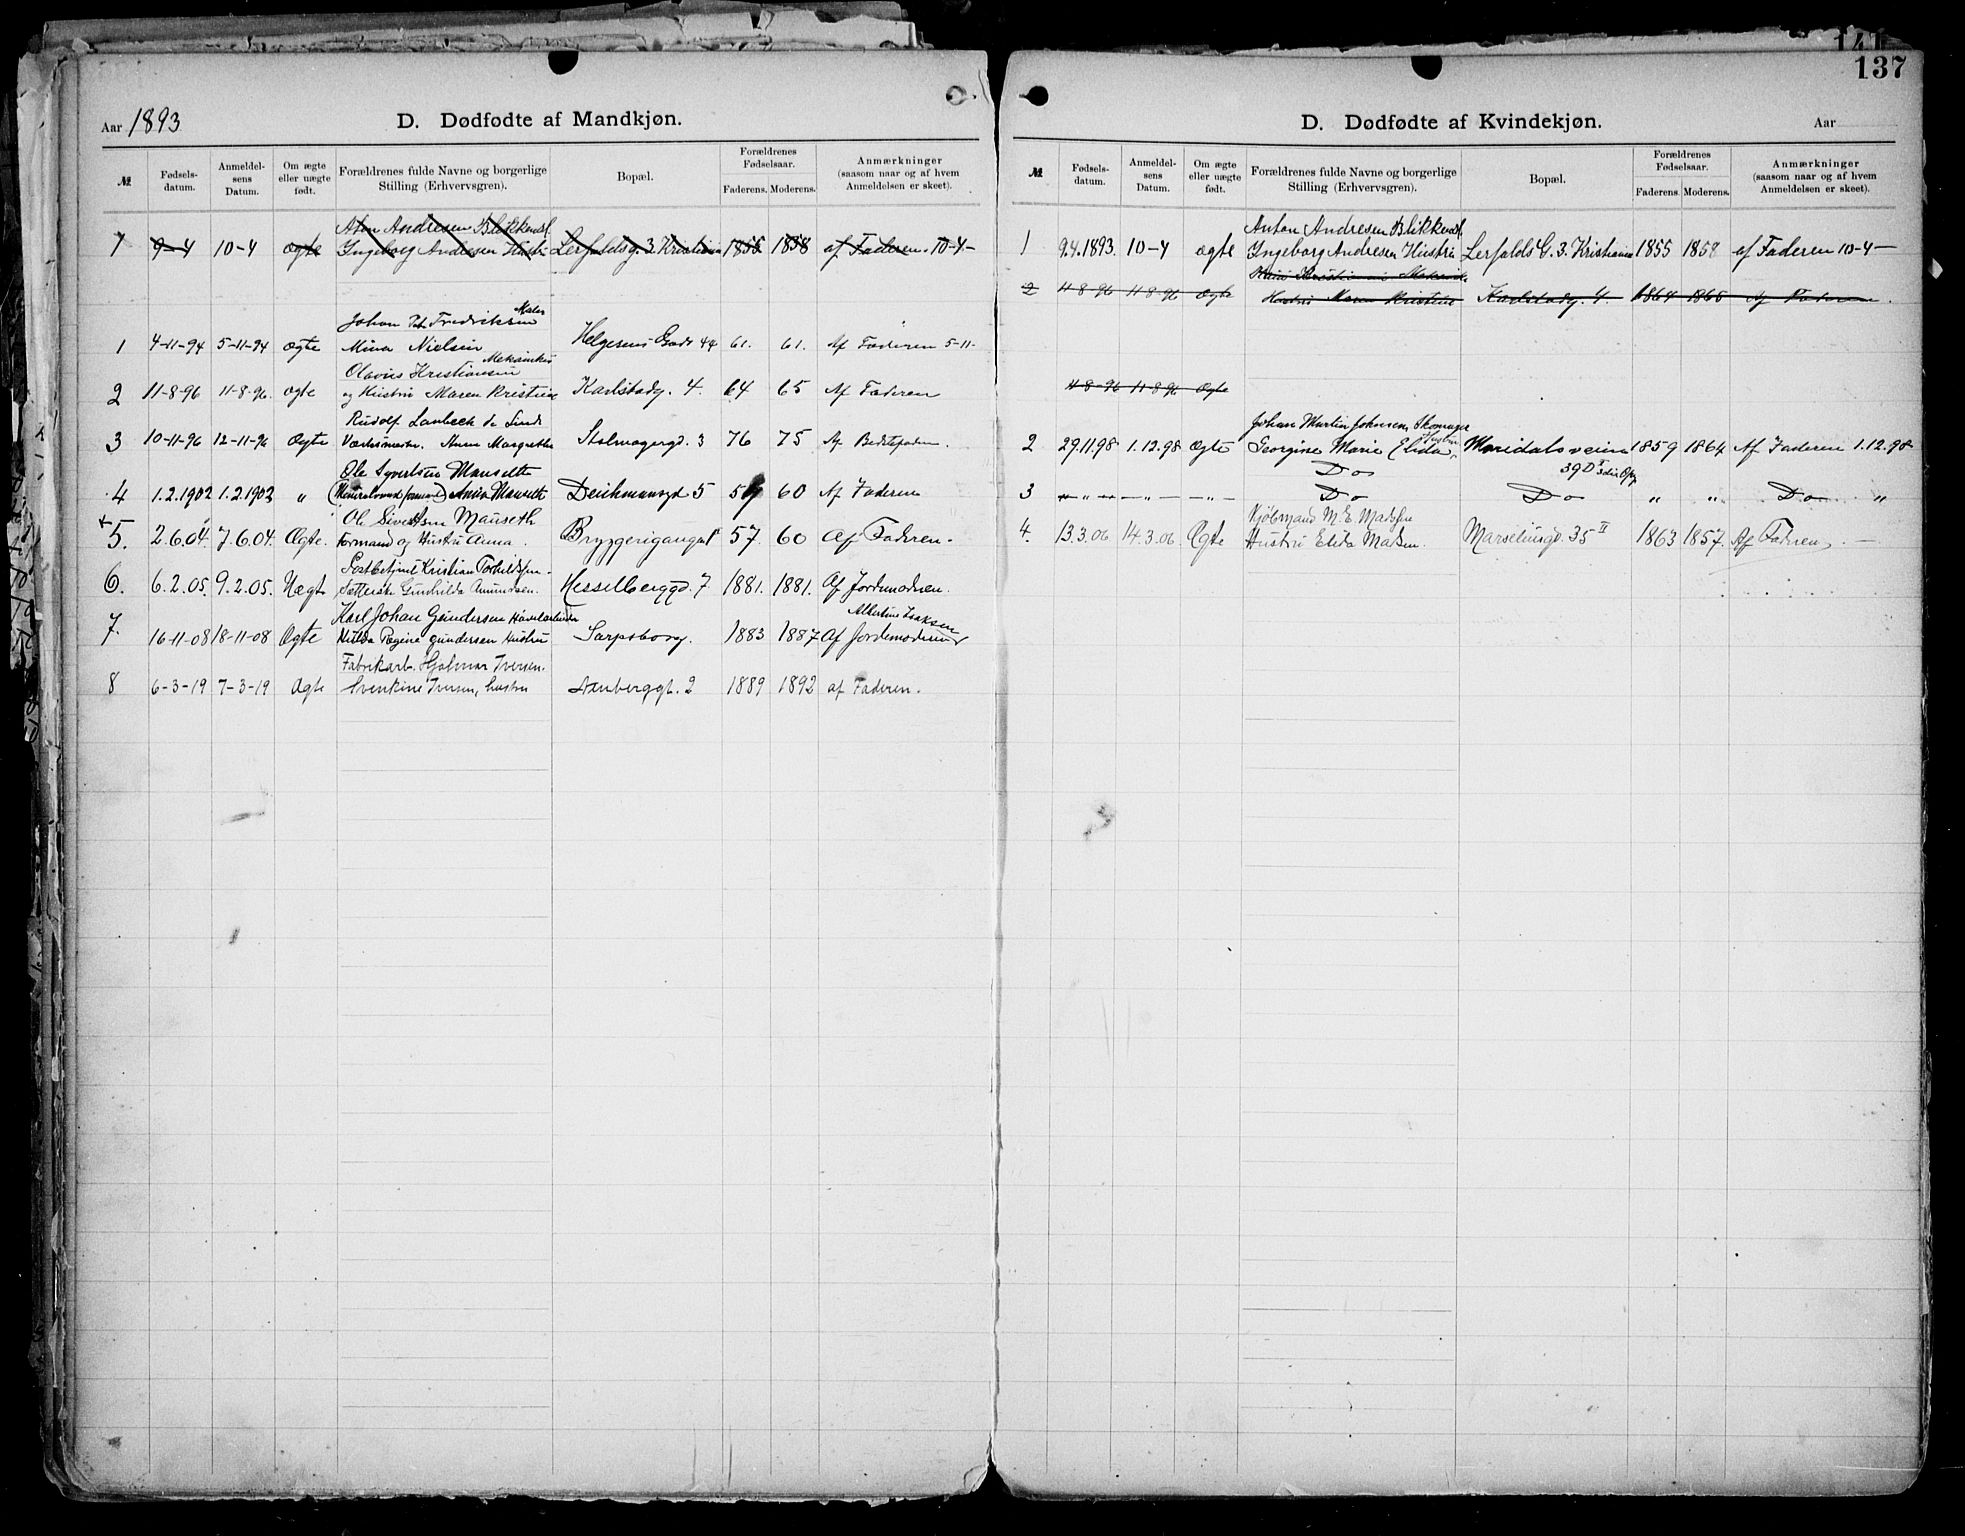 141
137
Aar 1893
D. Dødfødte af Mandkjøn.
№ Fødsels-datum. Anmeldel-sens Datum. Om ægte eller uægte født. Forældrenes fulde Navne og borgerlige Stilling (Erhvervsgren). Bopæl. Forældrenes Fødselsaar. Faderens. Moderens. Anmærkninger (saasom naar og af hvem Anmeldelsen er skeet).
Andresen Blikkensl.
1 9-4 10-4 ægte Ingeborg Andresen Hustru Lerfaldsg. 3 Kristiania 1855 1858 af Faderen 10-4-
Johan Fredriksen Maler
1 4-11-94 5-11-94 ægte Mina Nielsen Helgesens Gade 61. 61. Af Faderen 5-11-
Olavus Kristiansen Mekanikus
2 11-8-96 11-8-96. ægte og Hustru Maren Kristine Karlstadg. 4. 64 65 Af Faderen
Rudolf Lambeck de Lind
3 10-11-96 12-11-96 Ægte Værksmester. Anna Margrethe 3 76 75 Af Bedstefaderen.
Ole Syvertsen Mauseth
4 1.2.1902 1.2.1902 " Anna Mauseth Deichmansgd 5 60 Af Faderen
Ole Sivertsen Mauseth
+5. 2.6.04. 7.6.04. Ægte. Formand og Hustru Anna. Bryggerigangen 57. 60 Af Faderen.
Postbetjent Kristian Torkildsen.
6. 6.2.05. 9.2.05. Uægte Gunhilda Amundsen. Hesselberggd. 7 1881. 1881. Af Jordmoderen.
Karl Johan Gundersen Albertine Isaksen
7. 16-11-08 18-11-08 Ægte Hilda Regine Gundersen Hustru Sarpsborg. 1883 1887 Af Jordemoderen
Fabrikarb. Hjalmar Iversen.
8 6-3-19 7-3-19 Ægte Iversen, hustru 2 1889 1892 af Faderen.
D. Dødfødte af Kvindekjøn.
Aar
№ Fødsels-datum. Anmeldel-sens Datum. Om ægte eller uægte født. Forældrenes fulde Navne og borgerlige Stilling (Erhvervsgren). Bopæl. Forældrenes Fødselsaar. Faderens. Moderens. Anmærkninger (saasom naar og af hvem Anmeldelsen er skeet).
Anton Andresen Blikkensl.
1 9.4.1893. 10-4 ægte Ingeborg Andresen Hustru Lerfalds G. 3. Kristiania 1855 1858 af Faderen 10-4-
2 11-8-96 11-8-96 Ægte Hustru Maren Kristine Karlstadg. 4 1864 1865 Af Faderen.
11-8-96 11-8-96 Ægte
Johan Martin Johnsen, Skomager
2 29.11.98 1.12.98 Ægte Georgine Marie Elida, Hustru Maridalsveien 1859 1864 Af Faderen 1.12.98
Do 39 D
3 " " - " - - " - Do Do " " Do "
Kjøbmand M. E. Madsen
4. 13.3.06 14.3.06. Ægte Hustru Elida Madsen. Marseliusgd. 35 II 1863 1857. Af Faderen. -